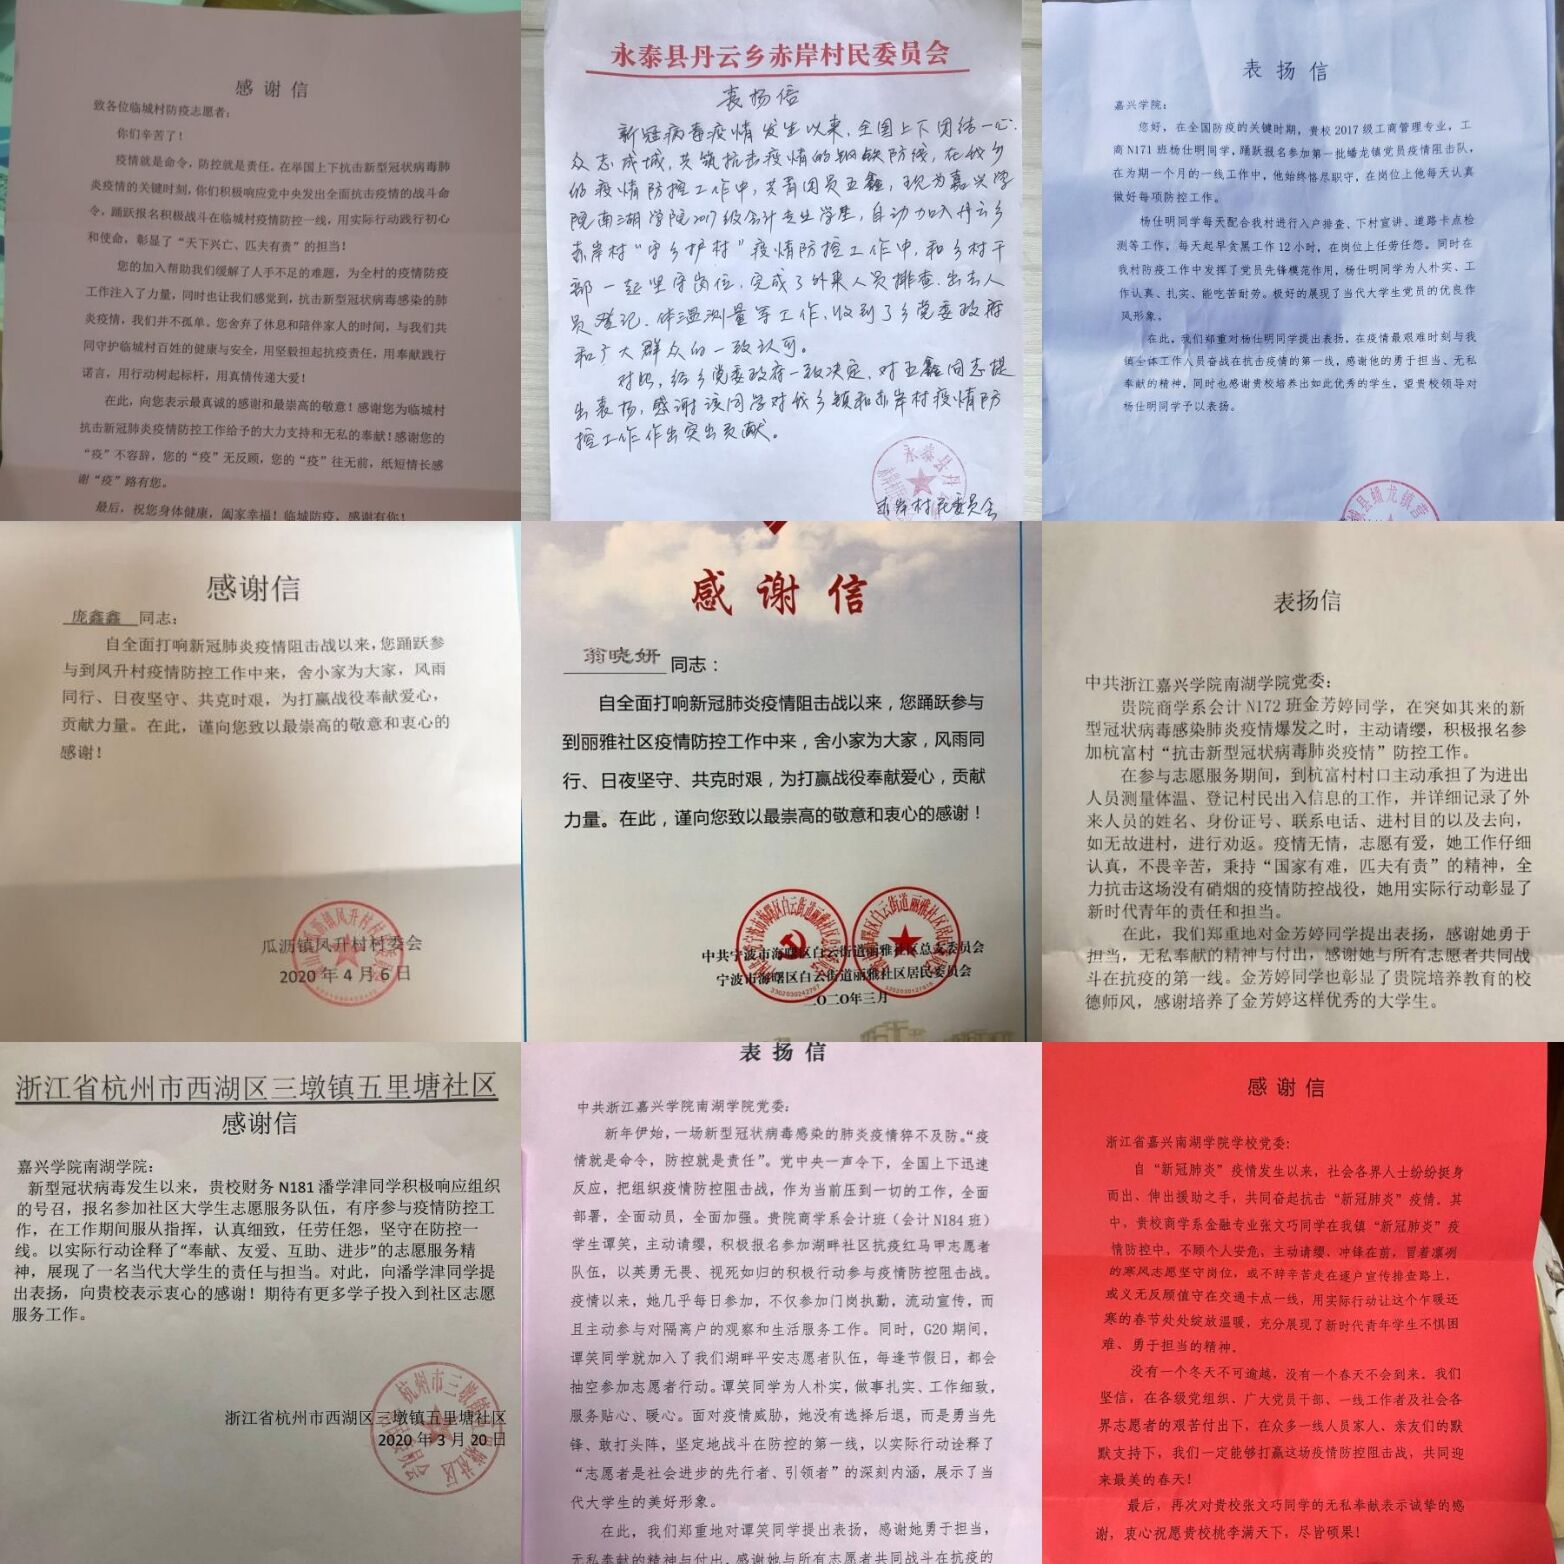 感谢信
致各位临城村防疫志愿者：
你们辛苦了！
疫情就是命令，防控就是责任。在举国上下抗击新型冠状病毒肺
炎疫情的关键时刻，你们积极响应党中央发出全面抗击疫情的战斗命
令，踊跃报名积极战斗在临城村疫情防控一线，用实际行动践行初心
和使命，彰显了“天下兴亡、匹夫有责”的担当！
您的加入帮助我们缓解了人手不足的难题，为全村的疫情防疫
工作注入了力量，同时也让我们感觉到，抗击新型冠状病毒感染的肺
炎疫情，我们并不孤单。您舍弃了休息和陪伴家人的时间，与我们共
同守护临城村百姓的健康与安全，用坚毅担起抗疫责任，用奉献践行
诺言，用行动树起标杆，用真情传递大爱！
在此，向您表示最真诚的感谢和最崇高的敬意！感谢您为临城村
抗击新冠肺炎疫情防控工作给予的大力支持和无私的奉献！感谢您的
“疫”不容辞，您的“疫”无反顾，您的“疫”往无前，纸短情长感
谢“疫”路有您。
最后，祝您身体健康，阖家幸福！临城防疫，感谢有你！
永泰县丹云乡赤岸村民委员会
表扬信
新冠病毒疫情发生以来，全国上下团结一心，
众志成城，共筑抗击疫情的钢铁防线，在我乡
的疫情防控工作中，共青团员王鑫，现为嘉兴学
院南湖学院2017级会计专业学生，自动加入丹云乡
赤岸村“守乡护村”疫情防控工作中，和乡村干
部一起坚守岗位，完成了外来人员排查、出去人
员登记、体温测量等工作，收到了乡党委政府
和广大群众的一致认可。
对此，经乡党委政府一致决定，对王鑫同志提
出表扬，感谢该同学对我乡镇和赤岸村疫情防
控工作作出突出贡献。
赤岸村民委员会
表扬信
嘉兴学院：
您好，在全国防疫的关键时期，贵校 2017 级工商管理专业，工
商 N171 班杨仕明同学，踊跃报名参加第一批蟠龙镇党员疫情阻击队，
在为期一个月的一线工作中，他始终恪尽职守，在岗位上他每天认真
做好每项防控工作。
杨仕明同学每天配合我村进行入户排查、下村宣讲、道路卡点检
测等工作，每天起早贪黑工作 12 小时，在岗位上任劳任怨。同时在
我村防疫工作中发挥了党员先锋模范作用，杨仕明同学为人朴实、工
作认真、扎实、能吃苦耐劳。极好的展现了当代大学生党员的优良作
风形象。
在此，我们郑重对杨仕明同学提出表扬，在疫情最艰难时刻与我
镇全体工作人员奋战在抗击疫情的第一线，感谢他的勇于担当、无私
奉献的精神，同时也感谢贵校培养出如此优秀的学生，望贵校领导对
杨仕明同学予以表扬。
感谢信
庞鑫鑫 同志：
自全面打响新冠肺炎疫情阻击战以来，您踊跃参
与到凤升村疫情防控工作中来，舍小家为大家，风雨
同行、日夜坚守、共克时艰，为打赢战役奉献爱心，
贡献力量。在此，谨向您致以最崇高的敬意和衷心的
感谢！
瓜沥镇凤升村村委会
2020 年 4 月 6 日
感谢信
翁晓妍 同志：
自全面打响新冠肺炎疫情阻击战以来，您踊跃参与
到丽雅社区疫情防控工作中来，舍小家为大家，风雨同
行、日夜坚守、共克时艰，为打赢战役奉献爱心，贡献
力量。在此，谨向您致以最崇高的敬意和衷心的感谢！
中共宁波市海曙区白云街道丽雅社区总支委员会
宁波市海曙区白云街道丽雅社区居民委员会
二〇二〇年三月
表扬信
中共浙江嘉兴学院南湖学院党委：
贵院商学系会计 N172 班金芳婷同学，在突如其来的新
型冠状病毒感染肺炎疫情爆发之时，主动请缨，积极报名参
加杭富村“抗击新型冠状病毒肺炎疫情”防控工作。
在参与志愿服务期间，到杭富村村口主动承担了为进出
人员测量体温、登记村民出入信息的工作，并详细记录了外
来人员的姓名、身份证号、联系电话、进村目的以及去向，
如无故进村，进行劝返。疫情无情，志愿有爱，她工作仔细
认真，不畏辛苦，秉持“国家有难，匹夫有责”的精神，全
力抗击这场没有硝烟的疫情防控战役，她用实际行动彰显了
新时代青年的责任和担当。
在此，我们郑重地对金芳婷同学提出表扬，感谢她勇于
担当，无私奉献的精神与付出，感谢她与所有志愿者共同战
斗在抗疫的第一线。金芳婷同学也彰显了贵院培养教育的校
德师风，感谢培养了金芳婷这样优秀的大学生。
浙江省杭州市西湖区三墩镇五里塘社区
感谢信
嘉兴学院南湖学院：
新型冠状病毒发生以来，贵校财务 N181 潘学津同学积极响应组织
的号召，报名参加社区大学生志愿服务队伍，有序参与疫情防控工
作，在工作期间服从指挥，认真细致，任劳任怨，坚守在防控一
线。以实际行动诠释了“奉献、友爱、互助、进步”的志愿服务精
神，展现了一名当代大学生的责任与担当。对此，向潘学津同学提
出表扬，向贵校表示衷心的感谢！期待有更多学子投入到社区志愿
服务工作。
浙江省杭州市西湖区三墩镇五里塘社区
2020 年 3 月 20 日
表扬信
中共浙江嘉兴学院南湖学院党委：
新年伊始，一场新型冠状病毒感染的肺炎疫情猝不及防。“疫
情就是命令，防控就是责任”。党中央一声令下，全国上下迅速
反应，把组织疫情防控阻击战，作为当前压到一切的工作，全面
部署，全面动员，全面加强。贵院商学系会计班（会计 N184 班）
学生谭笑，主动请缨，积极报名参加湖畔社区抗疫红马甲志愿者
队伍，以英勇无畏、视死如归的积极行动参与疫情防控阻击战。
疫情以来，她几乎每日参加，不仅参加门岗执勤，流动宣传，而
且主动参与对隔离户的观察和生活服务工作。同时，G20 期间，
谭笑同学就加入了我们湖畔平安志愿者队伍，每逢节假日，都会
抽空参加志愿者行动。谭笑同学为人朴实，做事扎实、工作细致，
服务贴心、暖心。面对疫情威胁，她没有选择后退，而是勇当先
锋、敢打头阵，坚定地战斗在防控的第一线，以实际行动诠释了
“志愿者是社会进步的先行者、引领者”的深刻内涵，展示了当
代大学生的美好形象。
在此，我们郑重地对谭笑同学提出表扬，感谢她勇于担当，
无私奉献的精神与付出，感谢她与所有志愿者共同战斗在抗疫的
感谢信
浙江省嘉兴南湖学院学校党委：
自“新冠肺炎”疫情发生以来，社会各界人士纷纷挺身
而出、伸出援助之手，共同奋起抗击“新冠肺炎”疫情。其
中，贵校商学系金融专业张文巧同学在我镇“新冠肺炎”疫
情防控中，不顾个人安危，主动请缨、冲锋在前，冒着凛冽
的寒风志愿坚守岗位，或不辞辛苦走在逐户宣传排查路上，
或义无反顾值守在交通卡点一线，用实际行动让这个乍暖还
寒的春节处处绽放温暖，充分展现了新时代青年学生不惧困
难、勇于担当的精神。
没有一个冬天不可逾越，没有一个春天不会到来。我们
坚信，在各级党组织、广大党员干部、一线工作者及社会各
界志愿者的艰苦付出下，在众多一线人员家人、亲友们的默
默支持下，我们一定能够打赢这场疫情防控阻击战，共同迎
来最美的春天！
最后，再次对贵校张文巧同学的无私奉献表示诚挚的感
谢，衷心祝愿贵校桃李满天下，尽皆硕果！